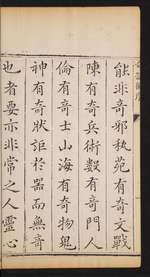 能非奇邪埶苑有奇文戰
陳有奇兵術數有奇門人
倫有奇士山海有奇物鬼
神有奇狀詎於器而無奇
也者要亦非常之人靈心